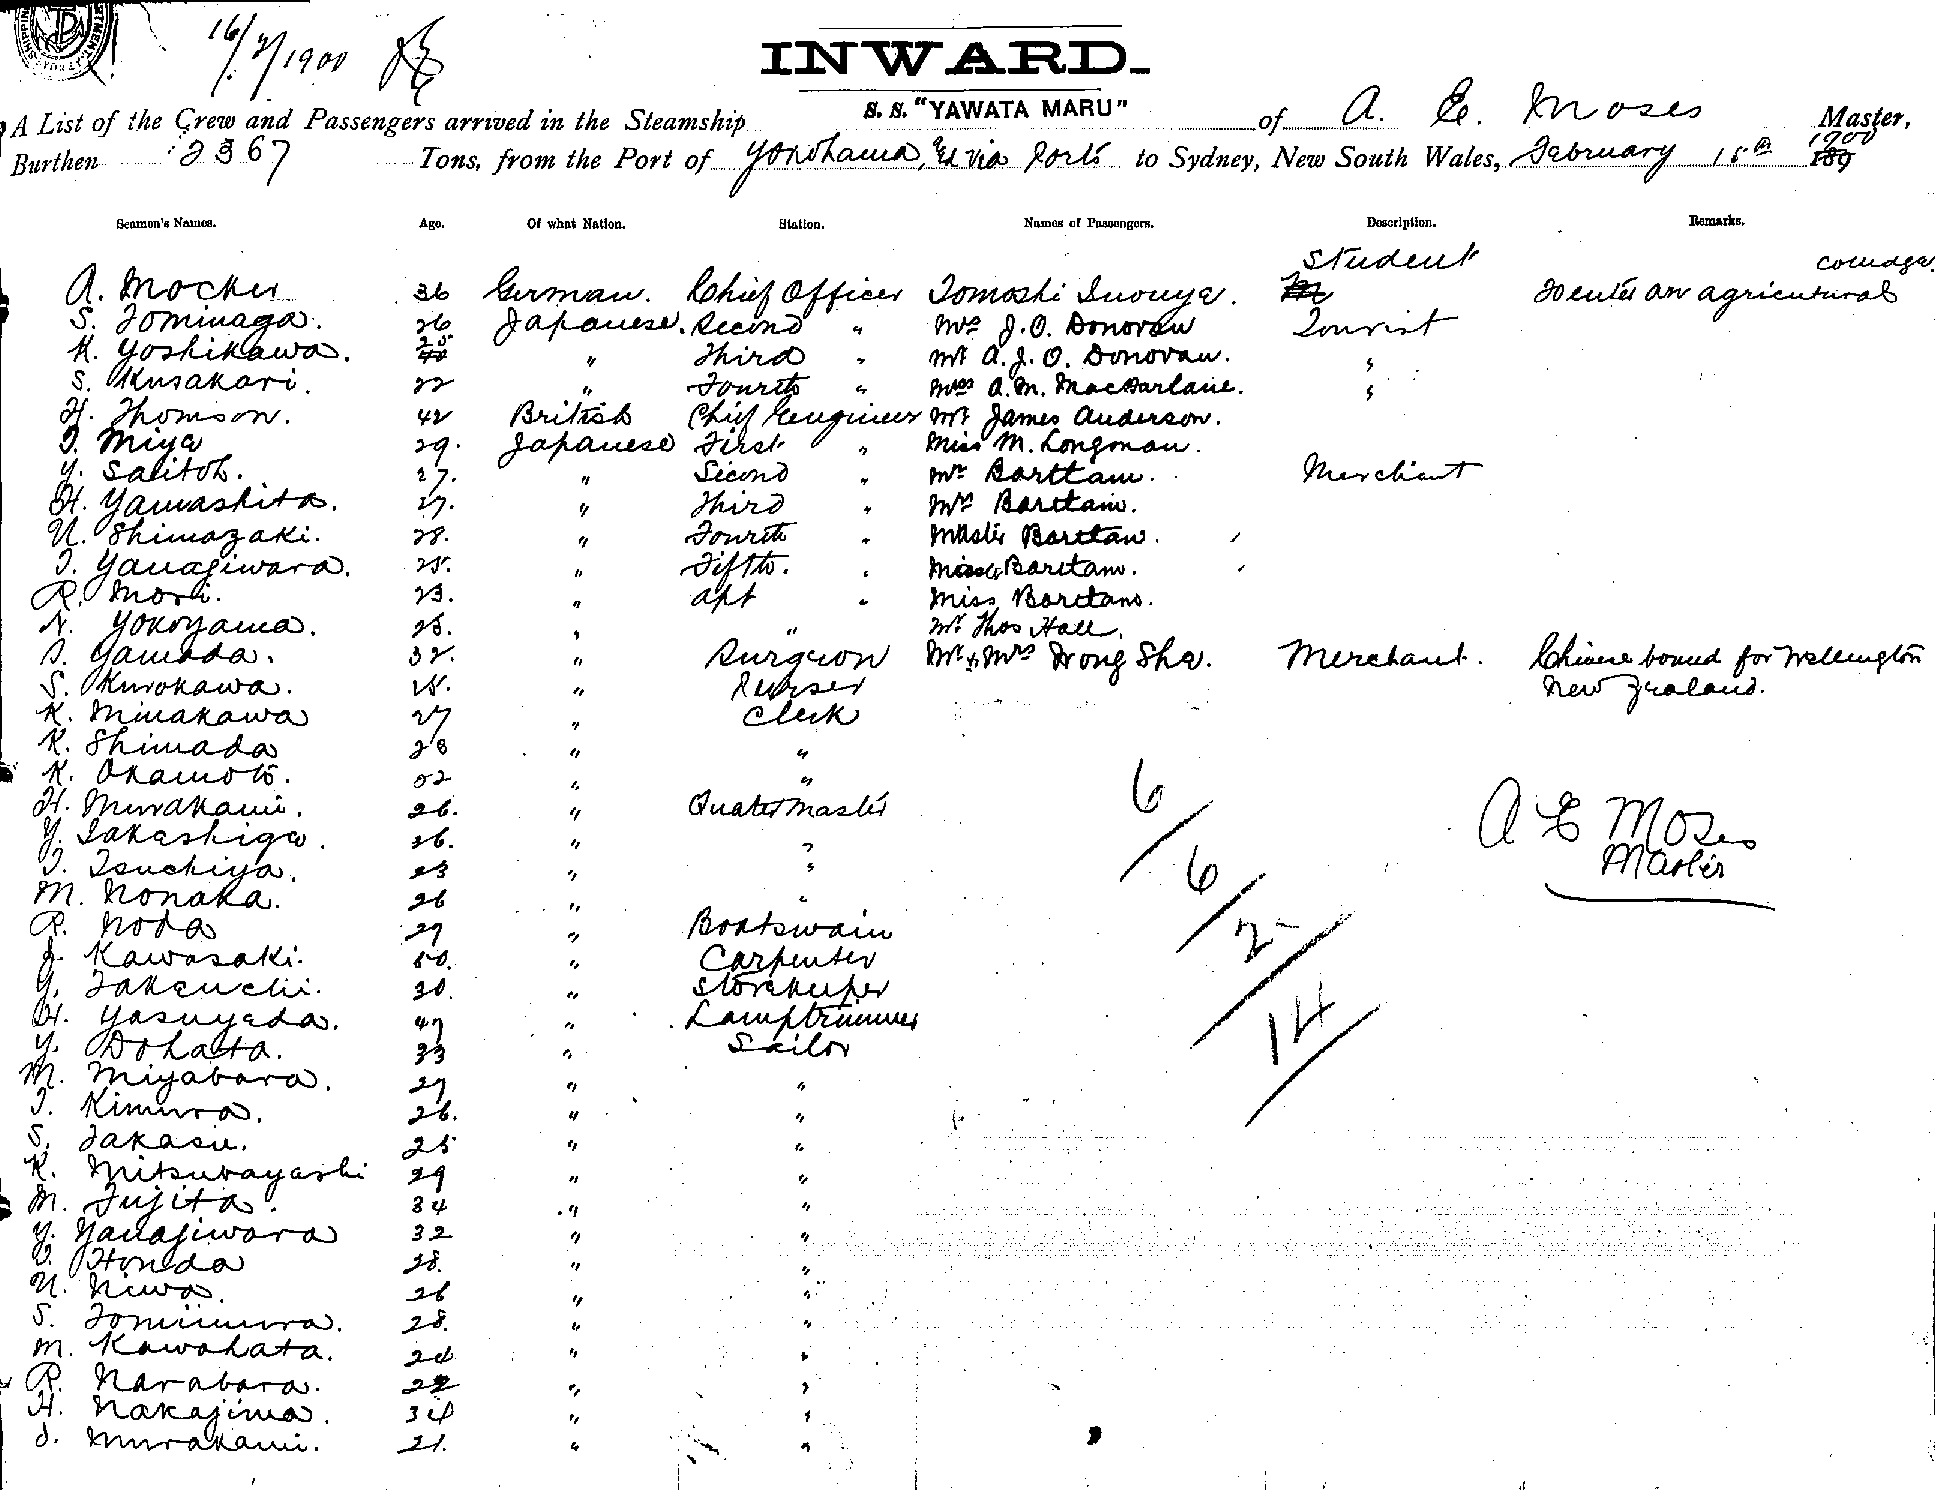 16/2/1900
INWARD.
A List of the Crew and Passengers arrived in the Steamship S. S. "YAWATA MARU" of A. E. Moses Master,
Burthen 2367 Tons, from the Port of Yokohama, & via Ports to Sydney, New South Wales, February 15th 189 1900
Seamen's Names. Age. Of what Nation. Station. Names of Passengers. Description. Remarks.
Student college.
A. Mocker 36 German. Chief Officer Tomoshi Inouye. To enter an agricultural
S. Tominaga. 26 Japanese. Second " Mrs J. O. Donovan Tourist
K. Yoshikawa. 25 " Third " Mr A. J. O. Donovan. "
S. Kusakari. 22 " Fourth " Miss A. M. MacFarlane. "
H. Thomson. 42 British Chief Engineer Mr James Anderson.
T. Miya 29. Japanese First " Miss M. Longman.
Y. Saitoh. 27. " Second " Mr Barttam. Merchant
H. Yamashita. 27. " Third " Mrs Barttam.
U. Shimazaki. 28. " Fourth " Master Barttam.
T. Yanagiwara. 25. " Fifth. " Miss Barttam.
R. Mori. 23. " Apt " Miss Barttam.
N. Yokoyama. 25. " " Mr Thos Hall.
S. Yamada. 32. " Surgeon Mr & Mrs Wong She. Merchant. Chinese bound for Wellington
S. Kurokawa. 25. " Purser New Zealand.
K. Minakawa 27 " Clerk
K. Shimada 28 " "
K. Okamoto. 52 " "
H. Murakami. 26. " Quatermaster
Y. Takashige. 26. " "
T. Tsuchiya. 23 " "
M. Nonaka. 26 " "
R. Noda 29 " Boatswain
J. Kawasaki. 50. " Carpenter
Y. Takeuchi. 30. " Storekeeper
H. Yasuyeda. 47 " Lamptrimmer
Y. Dohata. 33 " Sailor
M. Miyabara. 27 " "
T. Kimura. 26. " "
S. Takasu. 25 " "
K. Mitsubayashi 29 " "
M. Fujita. 34 " "
Y. Yanagiwara 32 " "
T. Honda 28. " "
U. Niwa. 26 " "
S. Tomimura. 28. " "
M. Kawahata. 24 " "
R. Narabara. 22 " "
H. Nakajima. 34 " "
J. Murakami. 21. " "
6
6
2
14
A E Moses
Master